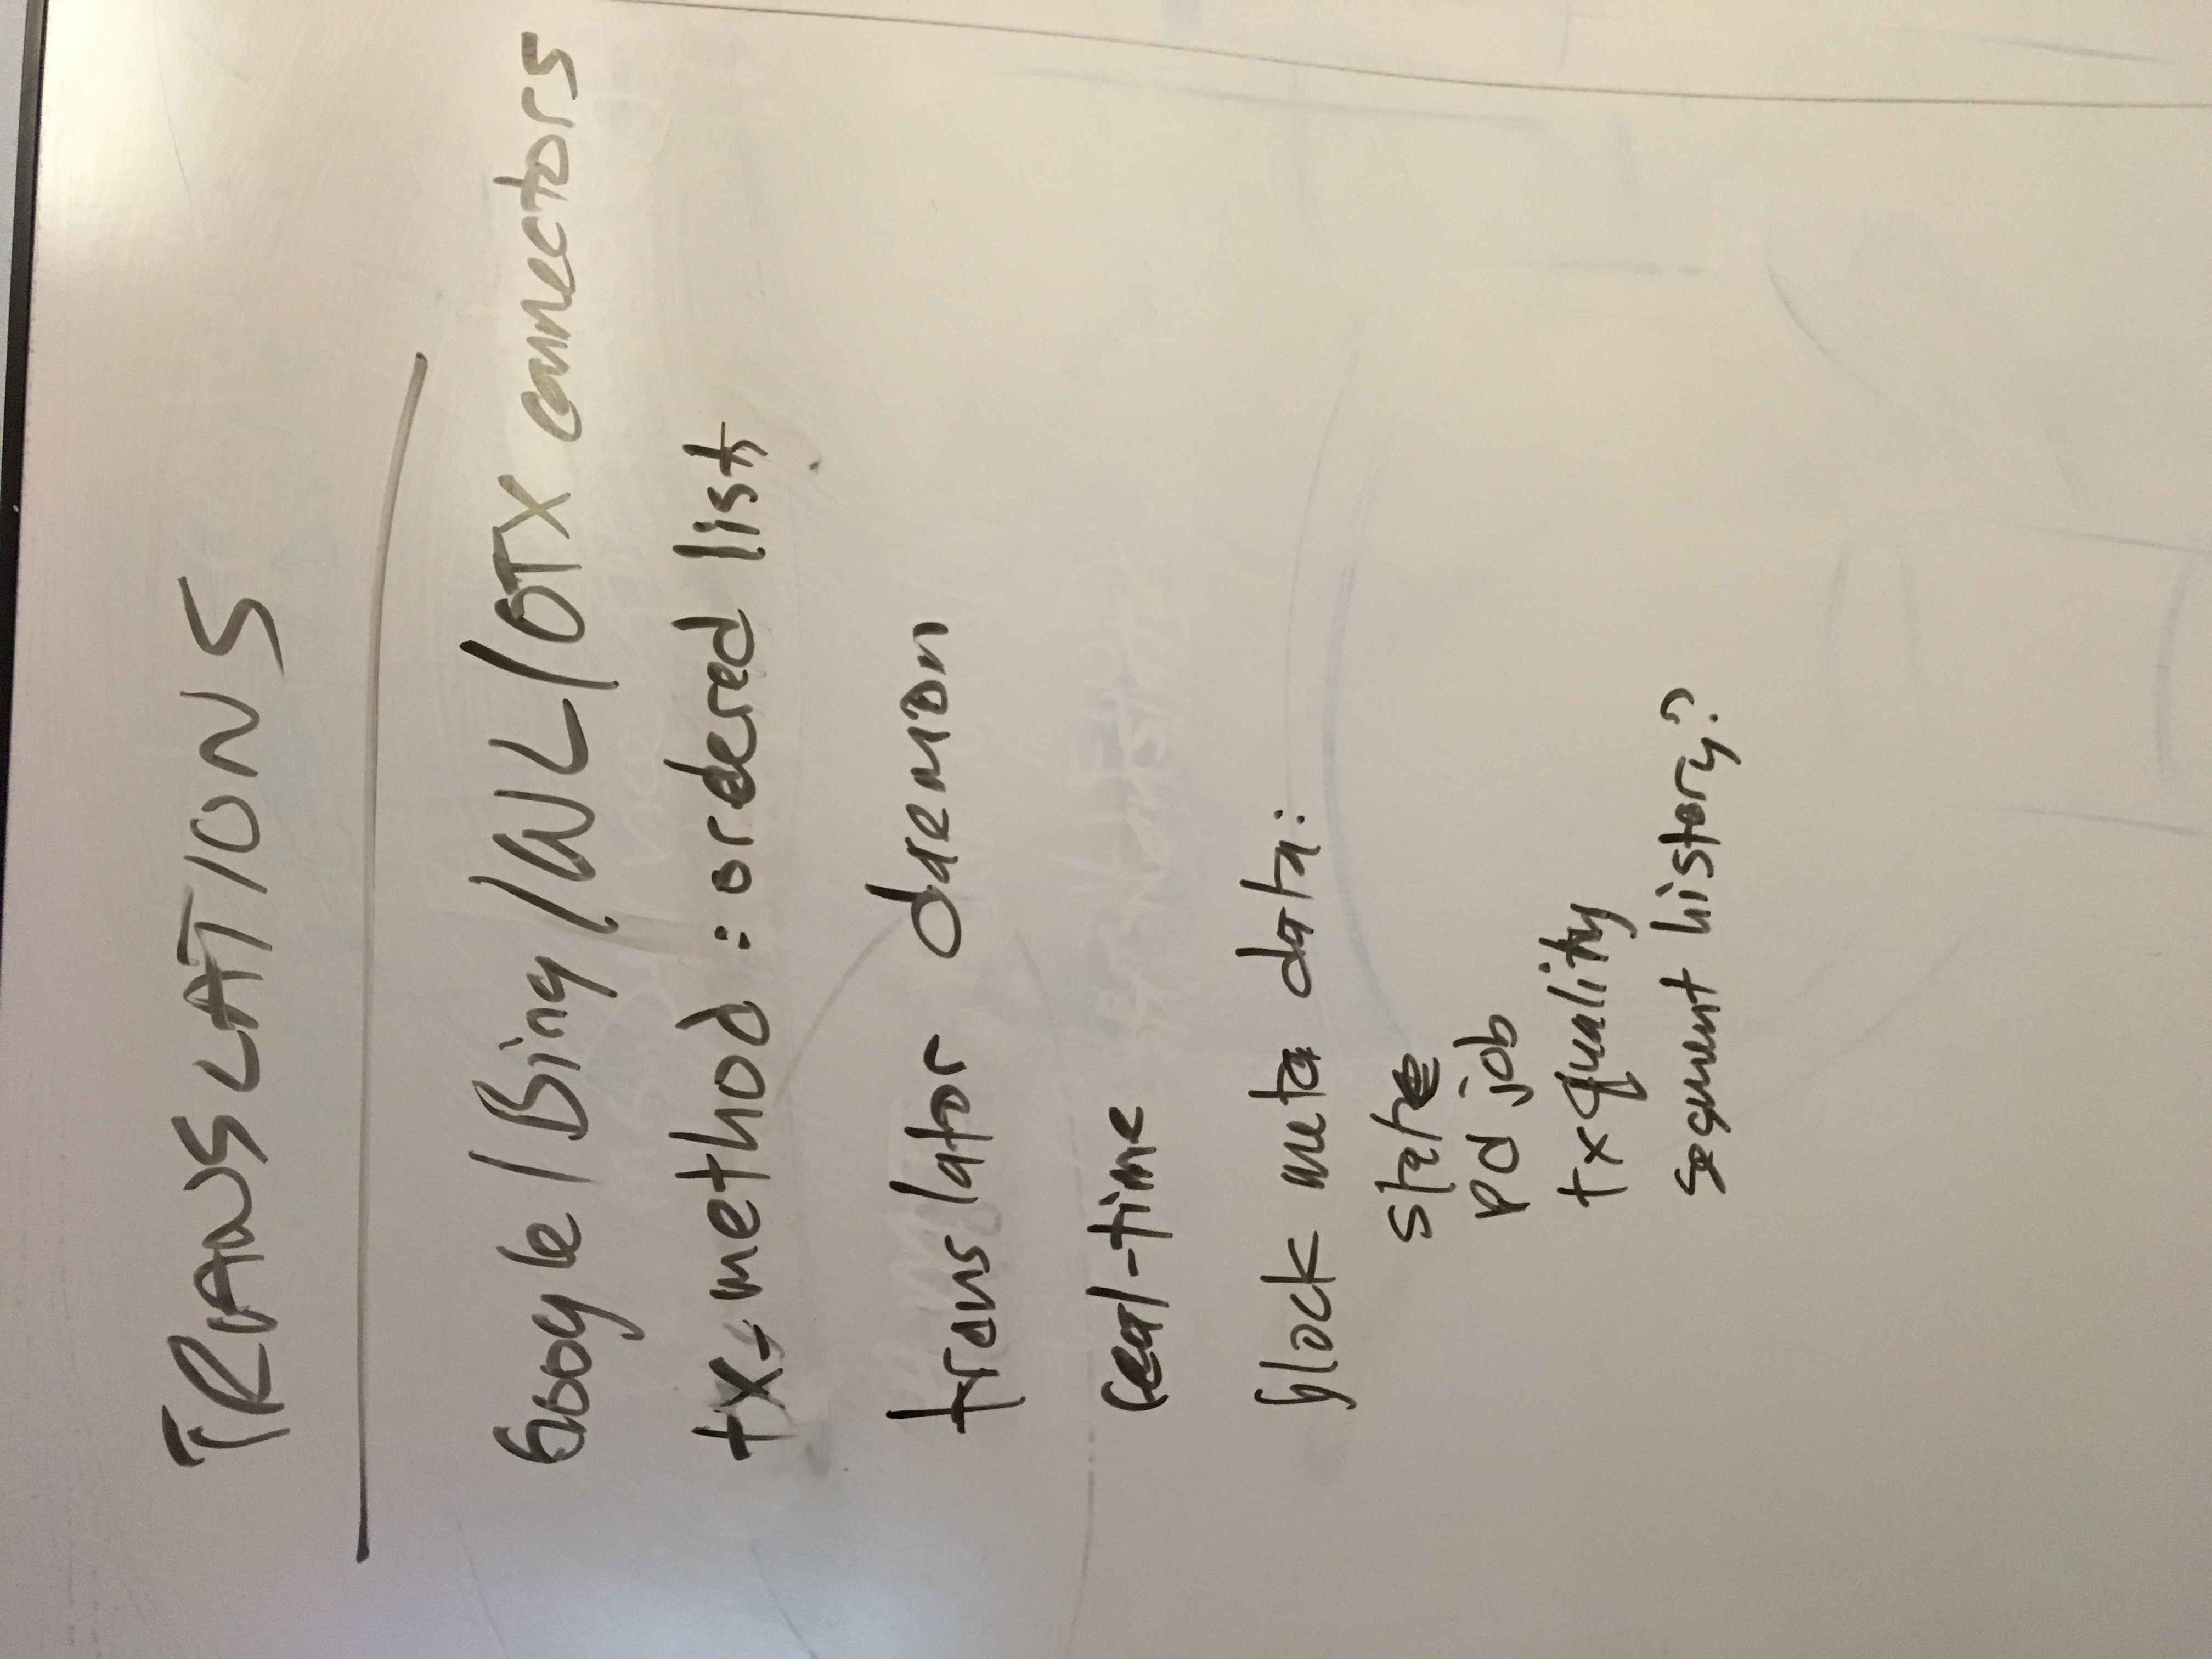 TRANSLATIONS
Google/Bing/WL/OTX connectors
tx-method: ordered list
translator daemon
real-time
block meta data:
state
pd job
tx quality
segment history?